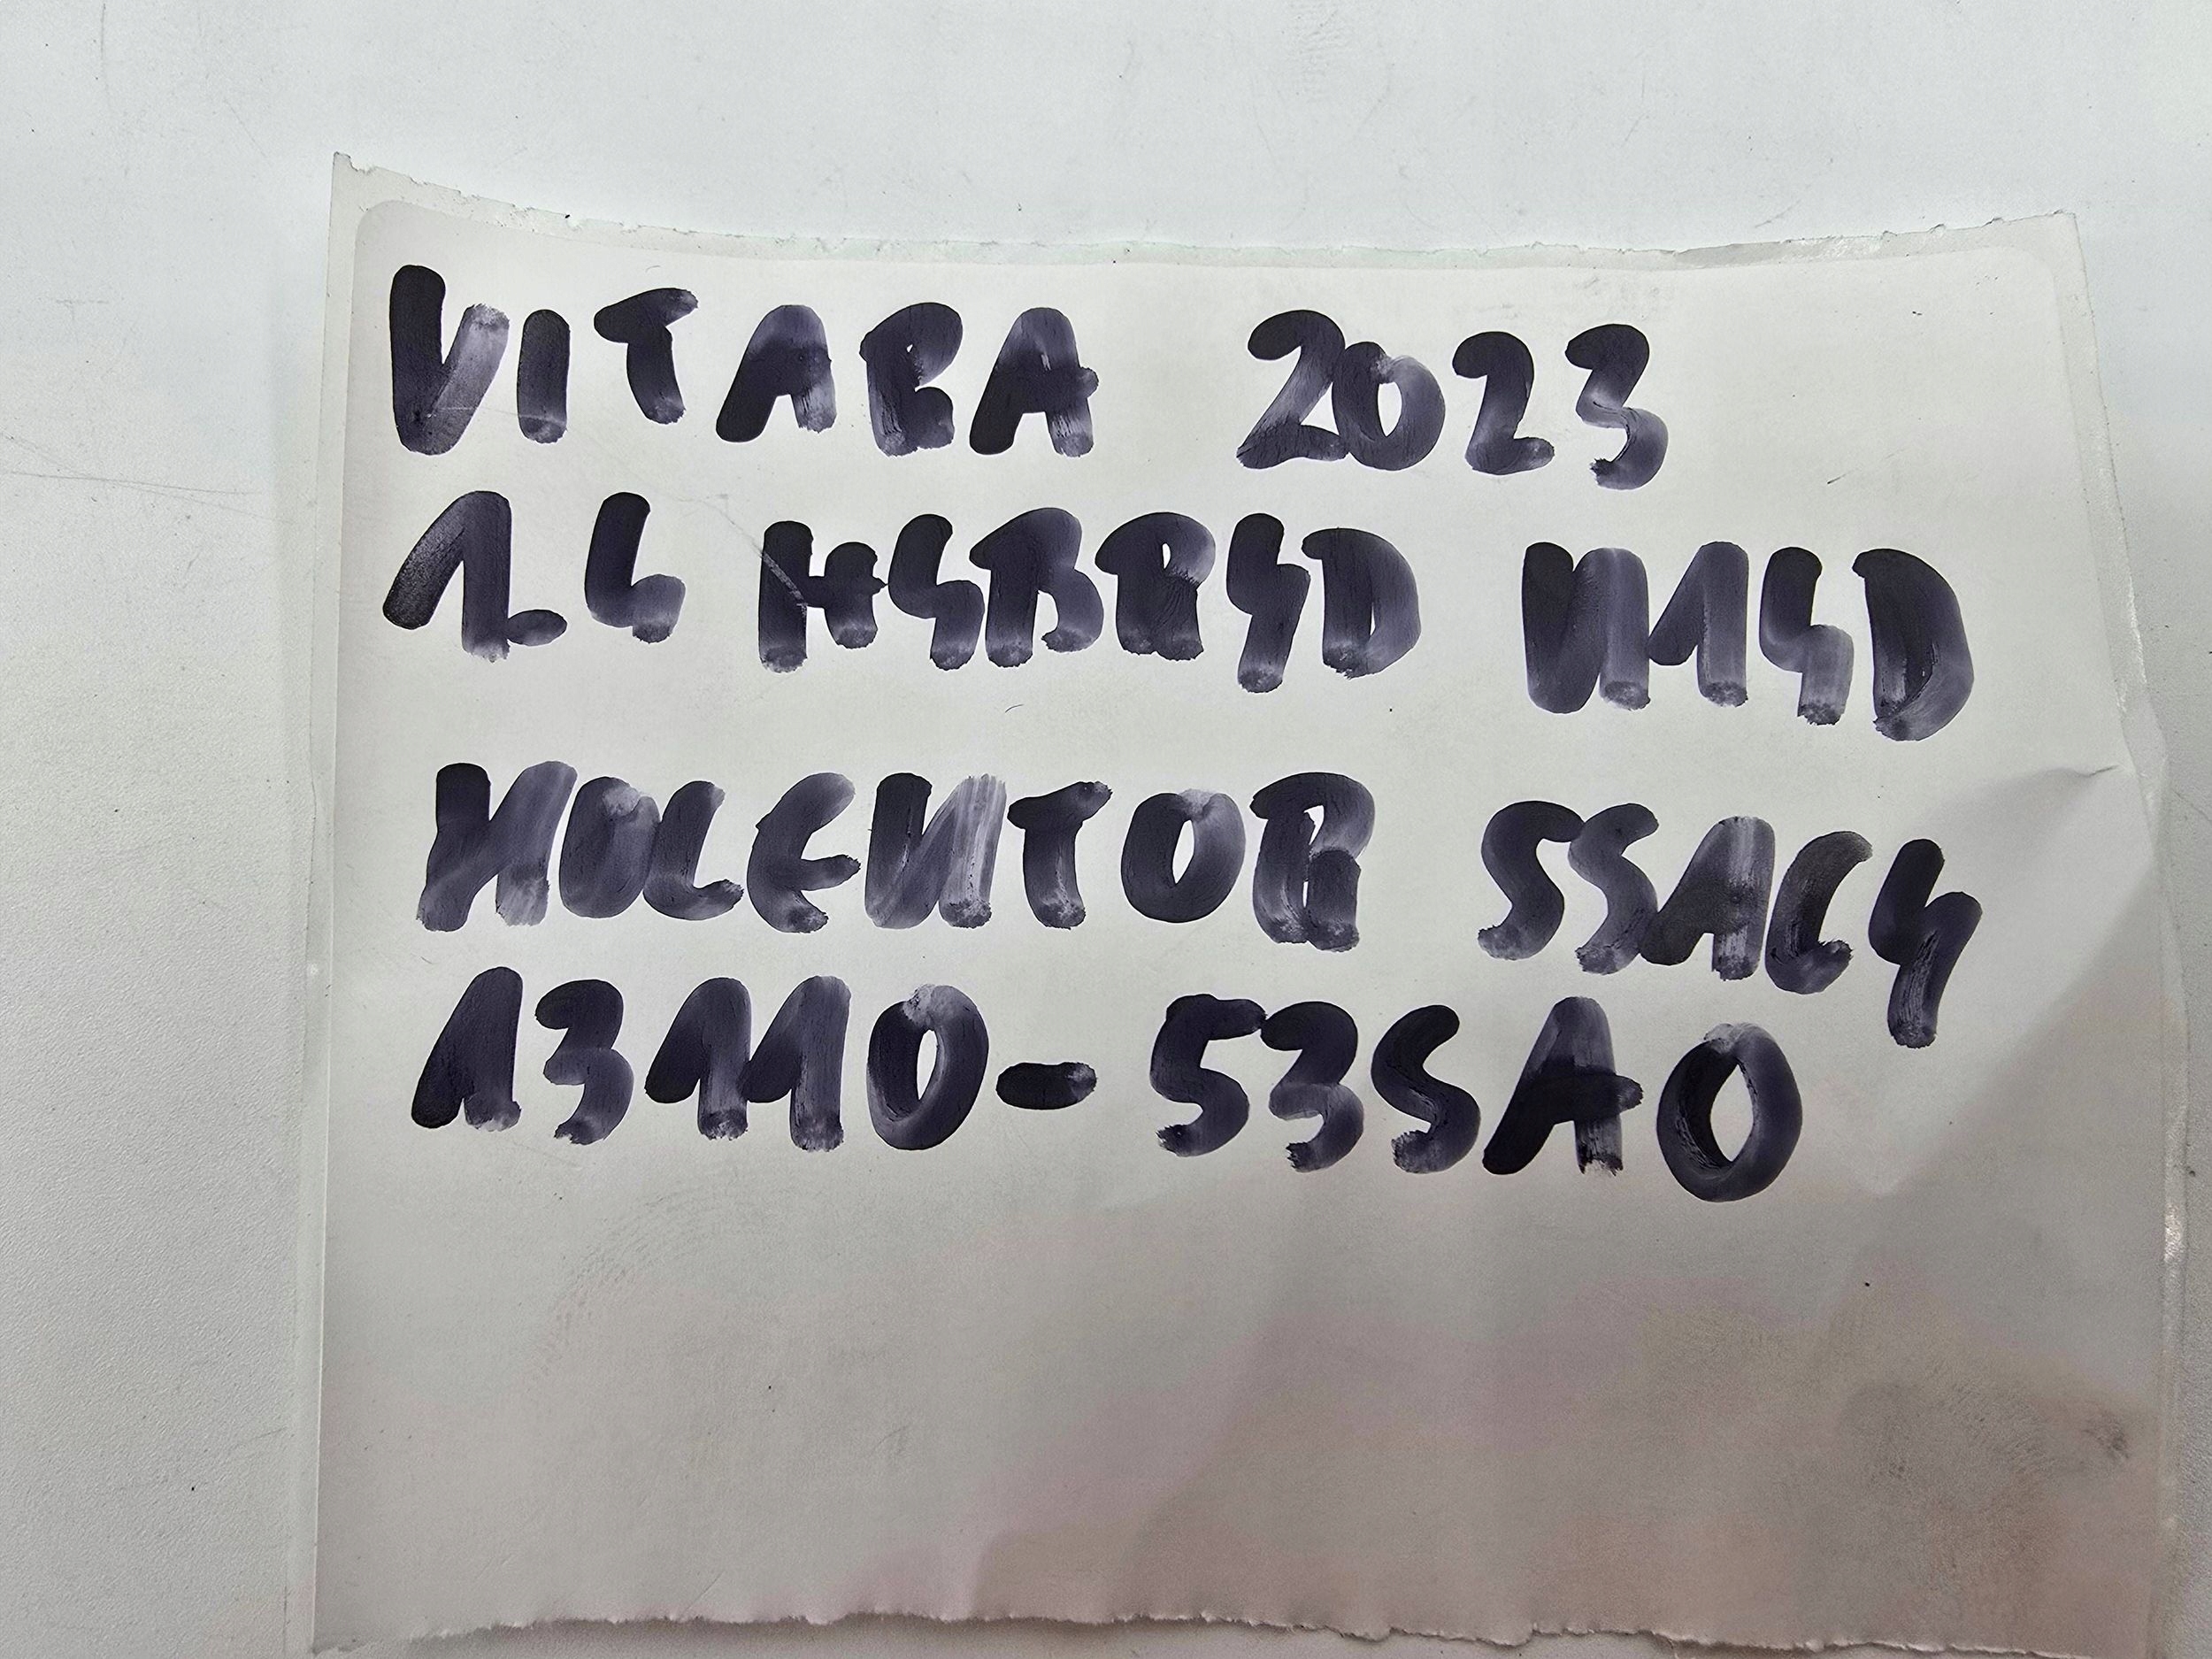 VITARA 2023
1.4 HYBRYD M14D
KOLEKTOR SSACY
13110-53SA0